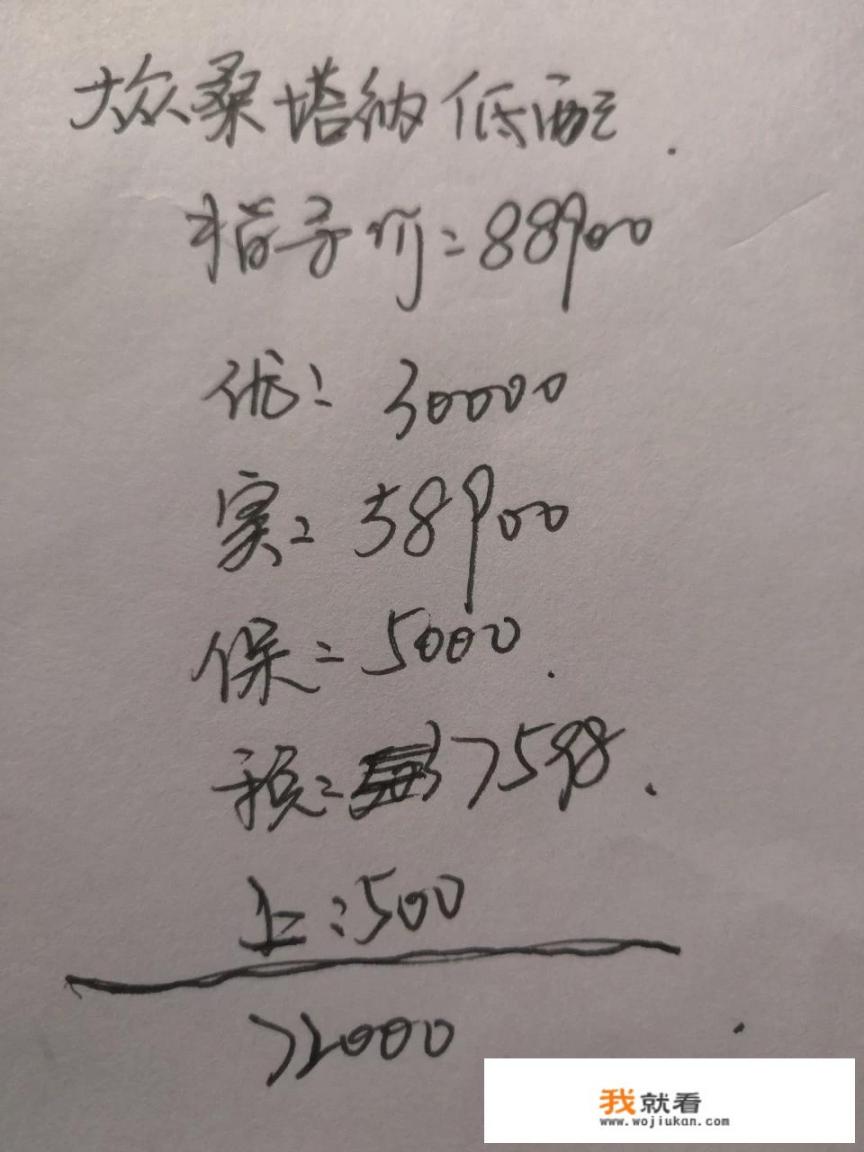 大众桑塔纳低配.
指导价=88900
优: 30000
实=58900
保=5000.
税=7598.
上:500
72000
我就看
www.wojiukan.com